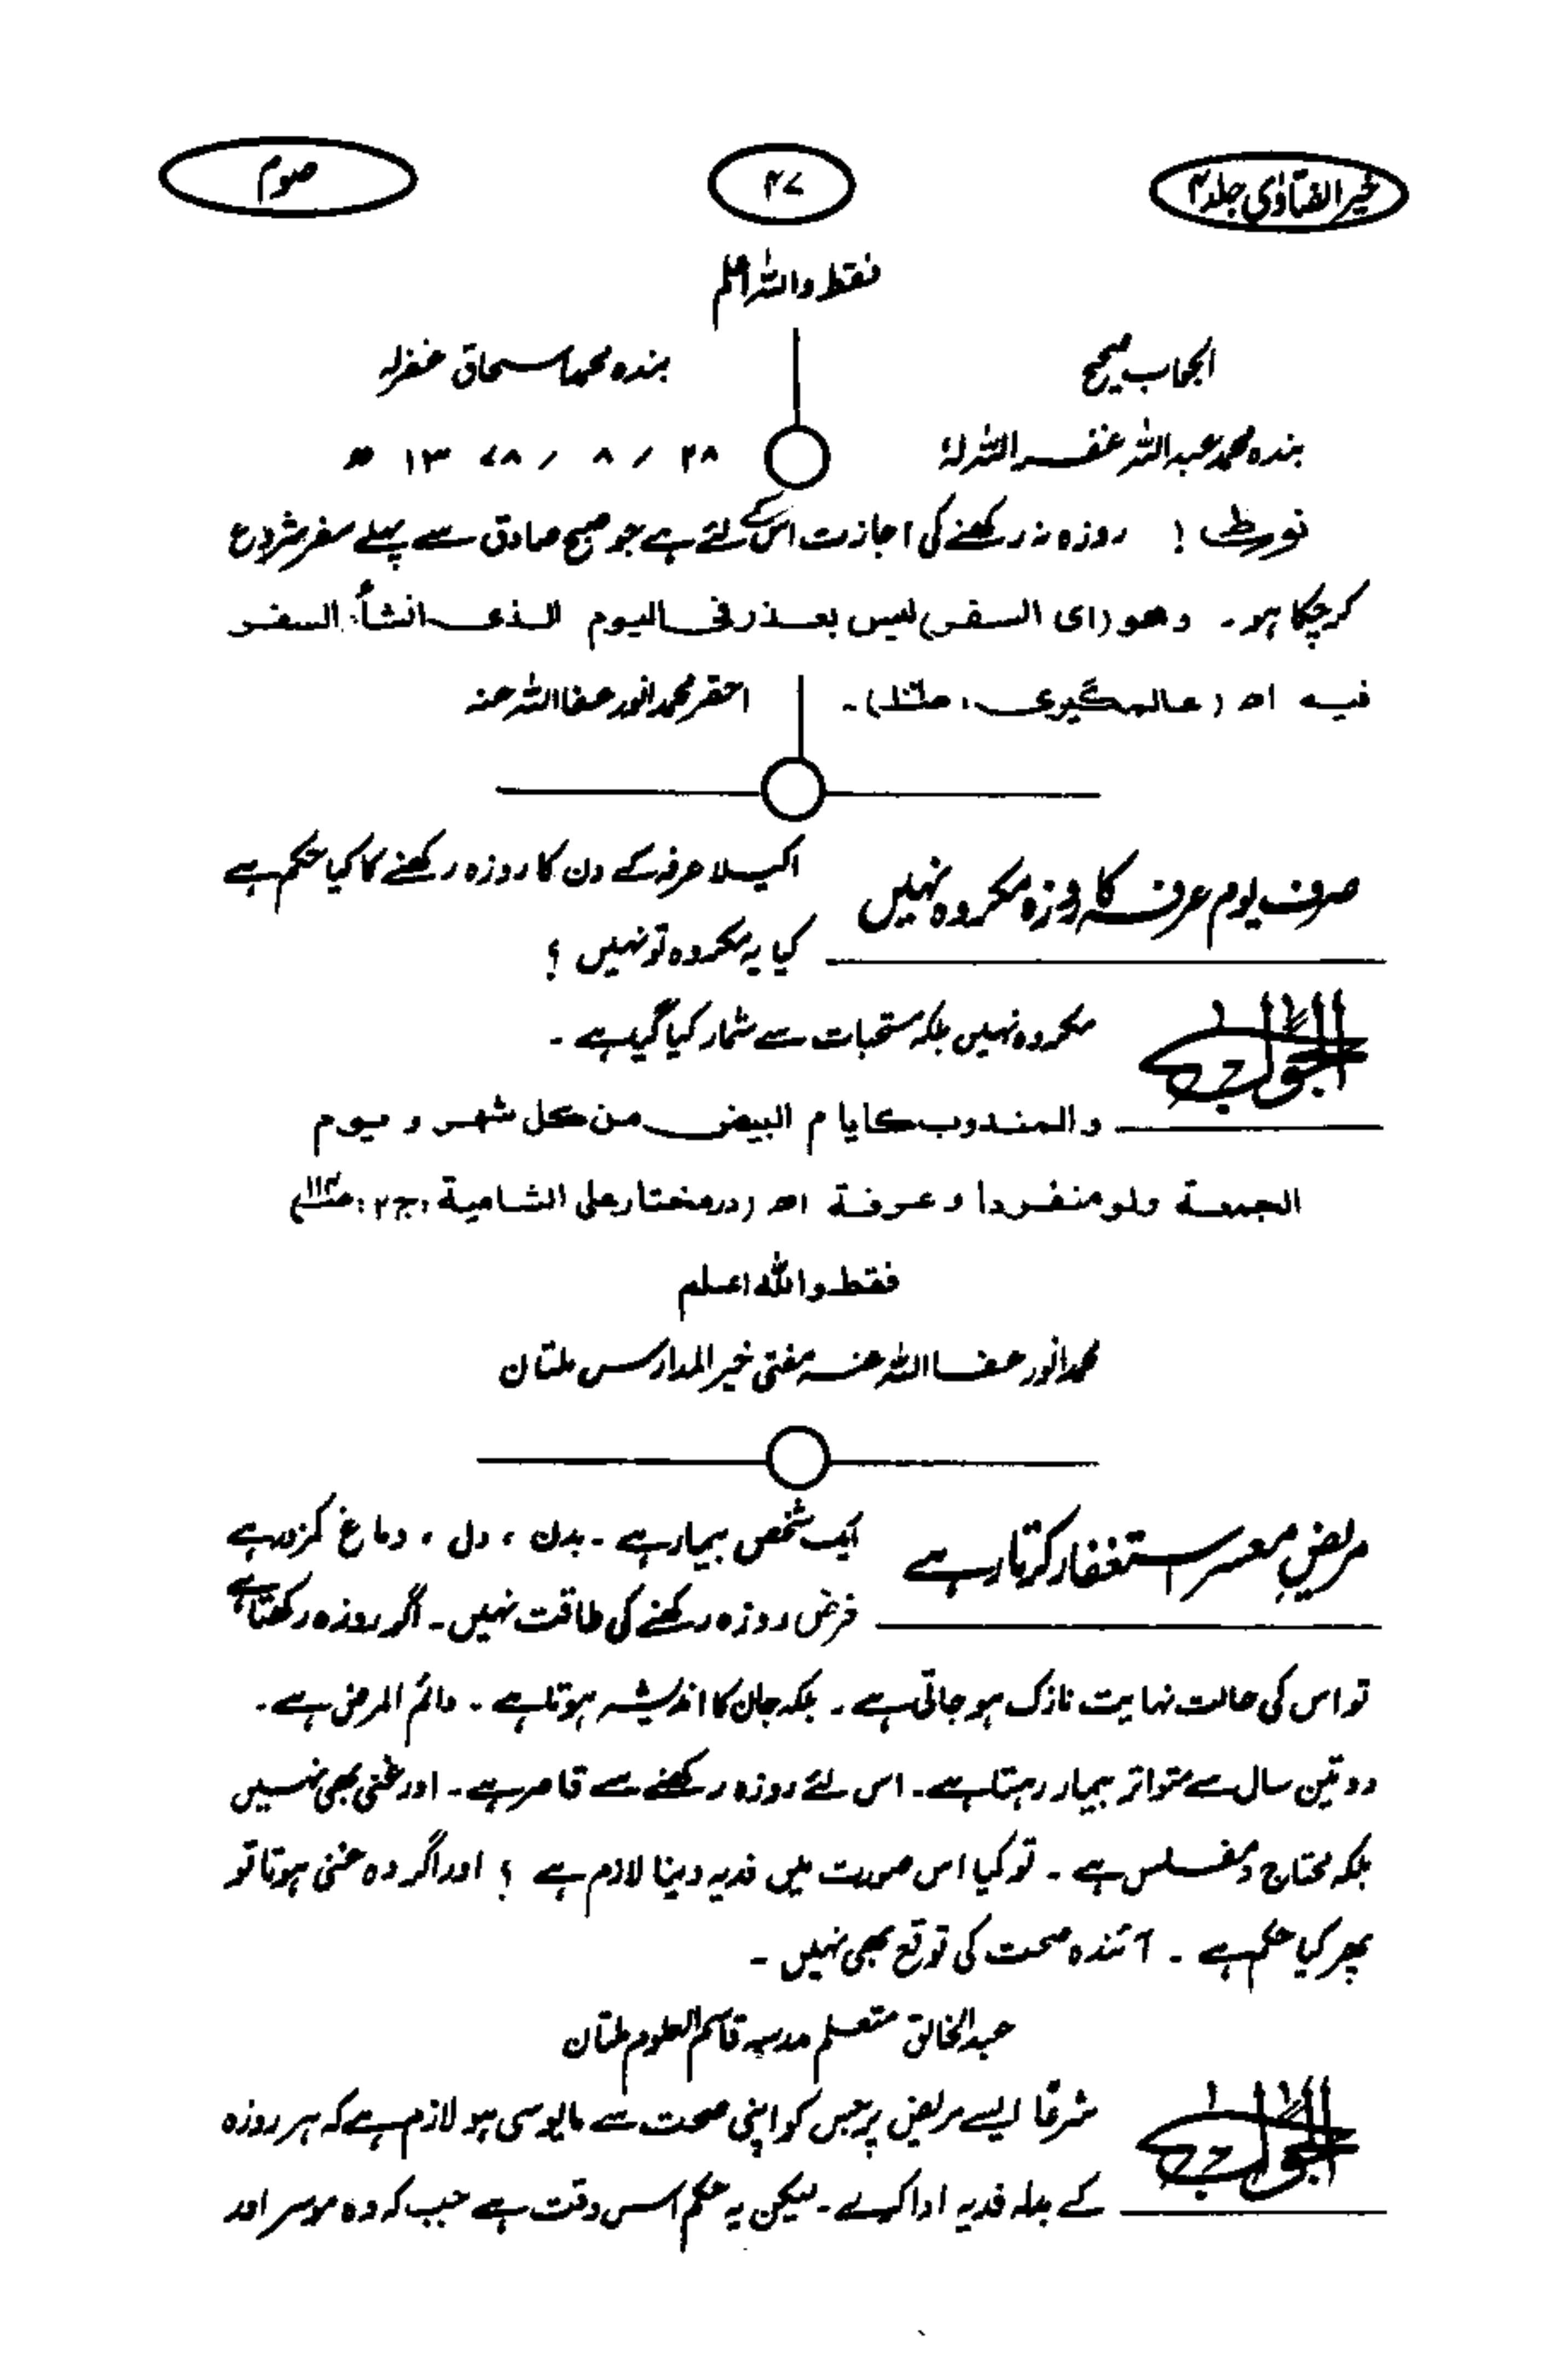 خیر الفتاوٰی جلد ۴
۴۷
صوم
فقط واللہ اعلم
الجواب صحیح
بندہ محمد اسحاق غفرلہ
بندہ محمد عبداللہ غفر اللہ لہٗ
۲۸ / ۸ / ۱۳۷۸ ھ
نوٹ ! روزہ نہ رکھنے کی اجازت اس کے لئے ہے جو صبح صادق سے پہلے سفر شروع
کر چکا ہو ۔ وھو (ای السفر) لیس بعذر فی الیوم الذی انشأ السفر
فیہ اھ (عالمگیری،
احقر محمد انور عفا اللہ عنہ
صرف یوم عرفہ کا روزہ مکروہ نہیں
اکیلا عرفہ کے دن کا روزہ رکھنے کا کیا حکم ہے
کیا یہ مکروہ تو نہیں ؟
الجواب
مکروہ نہیں بلکہ مستحبات سے شمار کیا گیا ہے ۔
والمندوب کایام البیض من کل شھر و یوم
الجمعة ولو منفردا و عرفة اھ (درمختار علی الشامیة ، ج۲ :
فقط واللہ اعلم
محمد انور عفا اللہ عنہ مفتی خیر المدارس ملتان
مریضِ معسر استغفار کرتا رہے
ایک شخص بیمار ہے ۔ بدن ، دل ، دماغ کمزور ہے
فرض روزہ رکھنے کی طاقت نہیں ۔ اگر روزہ رکھتا ہے
تو اس کی حالت نہایت نازک ہو جاتی ہے ۔ بلکہ جان کا اندیشہ ہوتا ہے ۔ دائم المرض ہے ۔
دو تین سال سے متواتر بیمار رہتا ہے ۔ اس لئے روزہ رکھنے سے قاصر ہے ۔ اور غنی بھی نہیں
بلکہ محتاج و مفلس ہے ۔ تو کیا اس صورت میں فدیہ دینا لازم ہے ؟ اور اگر وہ غنی ہوتا تو
پھر کیا حکم ہے ۔ آئندہ صحت کی توقع بھی نہیں ۔
عبدالخالق متعلم مدرسہ قاسم العلوم ملتان
الجواب
شرعًا ایسے مریض پر جس کو اپنی صحت سے مایوسی ہو لازم ہے کہ ہر روزہ
کے بدلہ فدیہ ادا کرے ۔ لیکن یہ حکم اس وقت ہے جب کہ وہ موسر اور